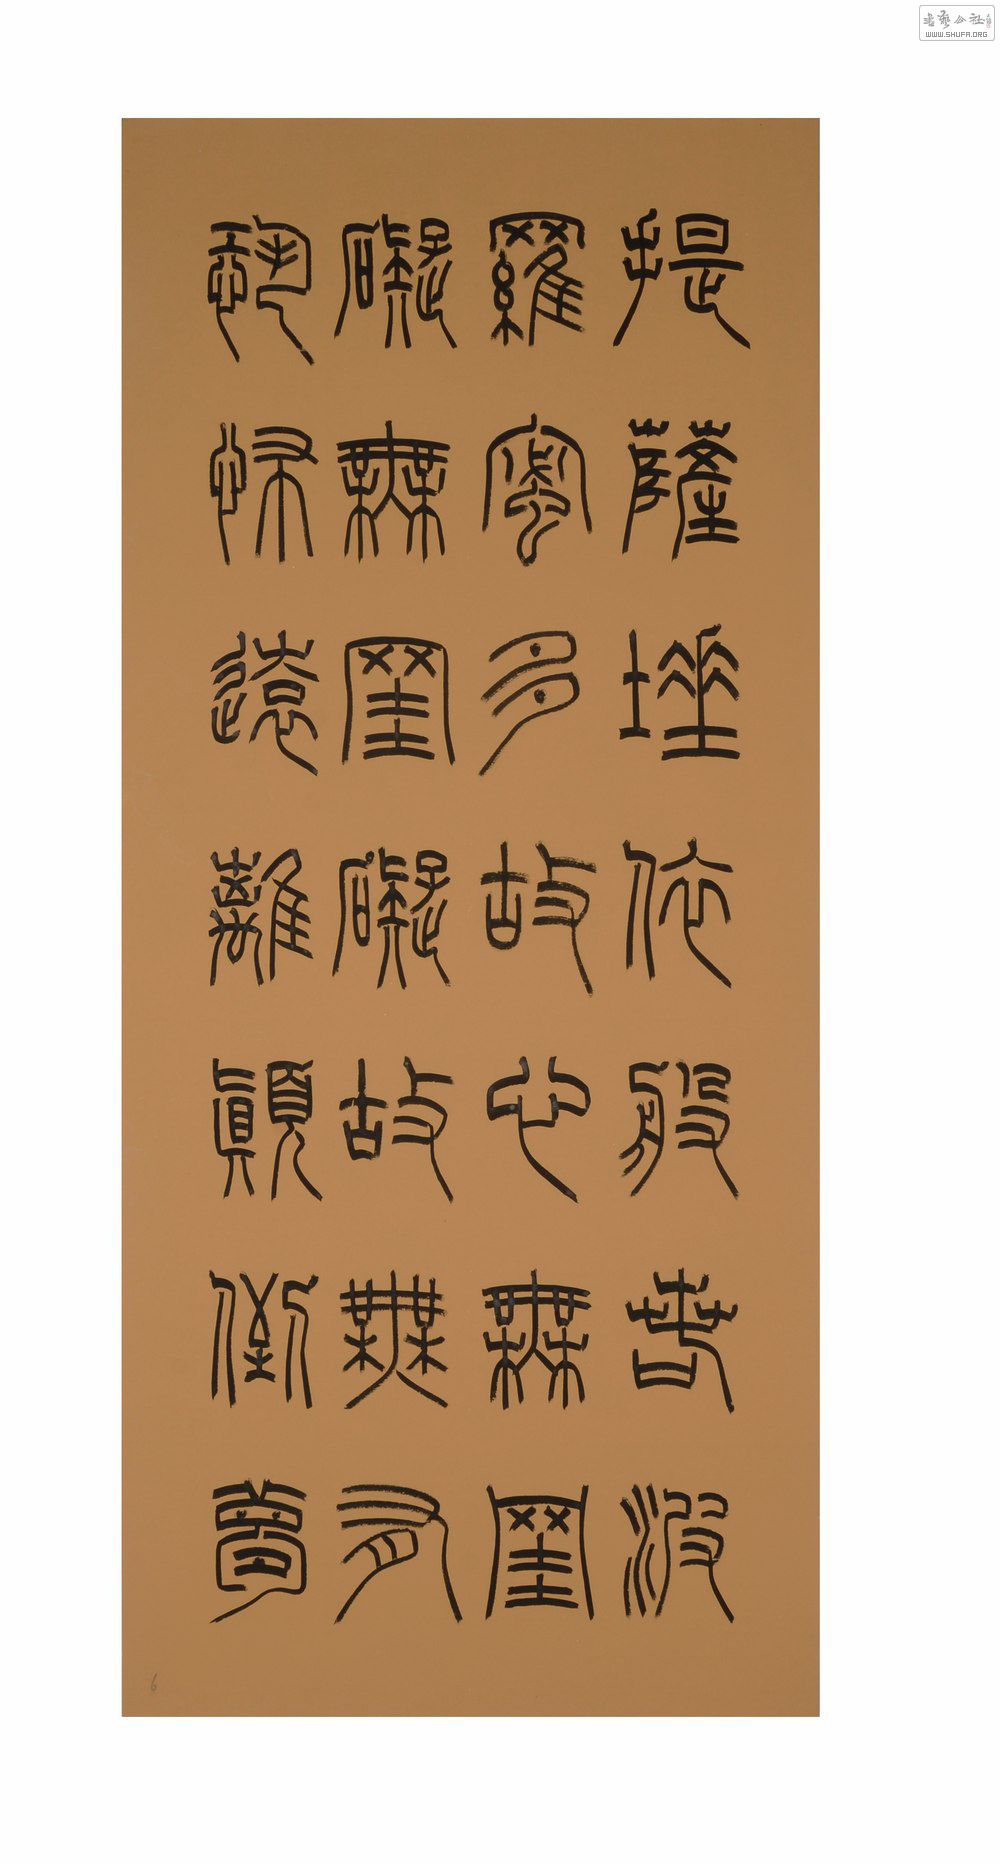 提薩埵依般若波
羅蜜多故心無罣
礙無罣礙故無有
恐怖遠離顛倒夢
书艺公社
WWW.SHUFA.ORG
6